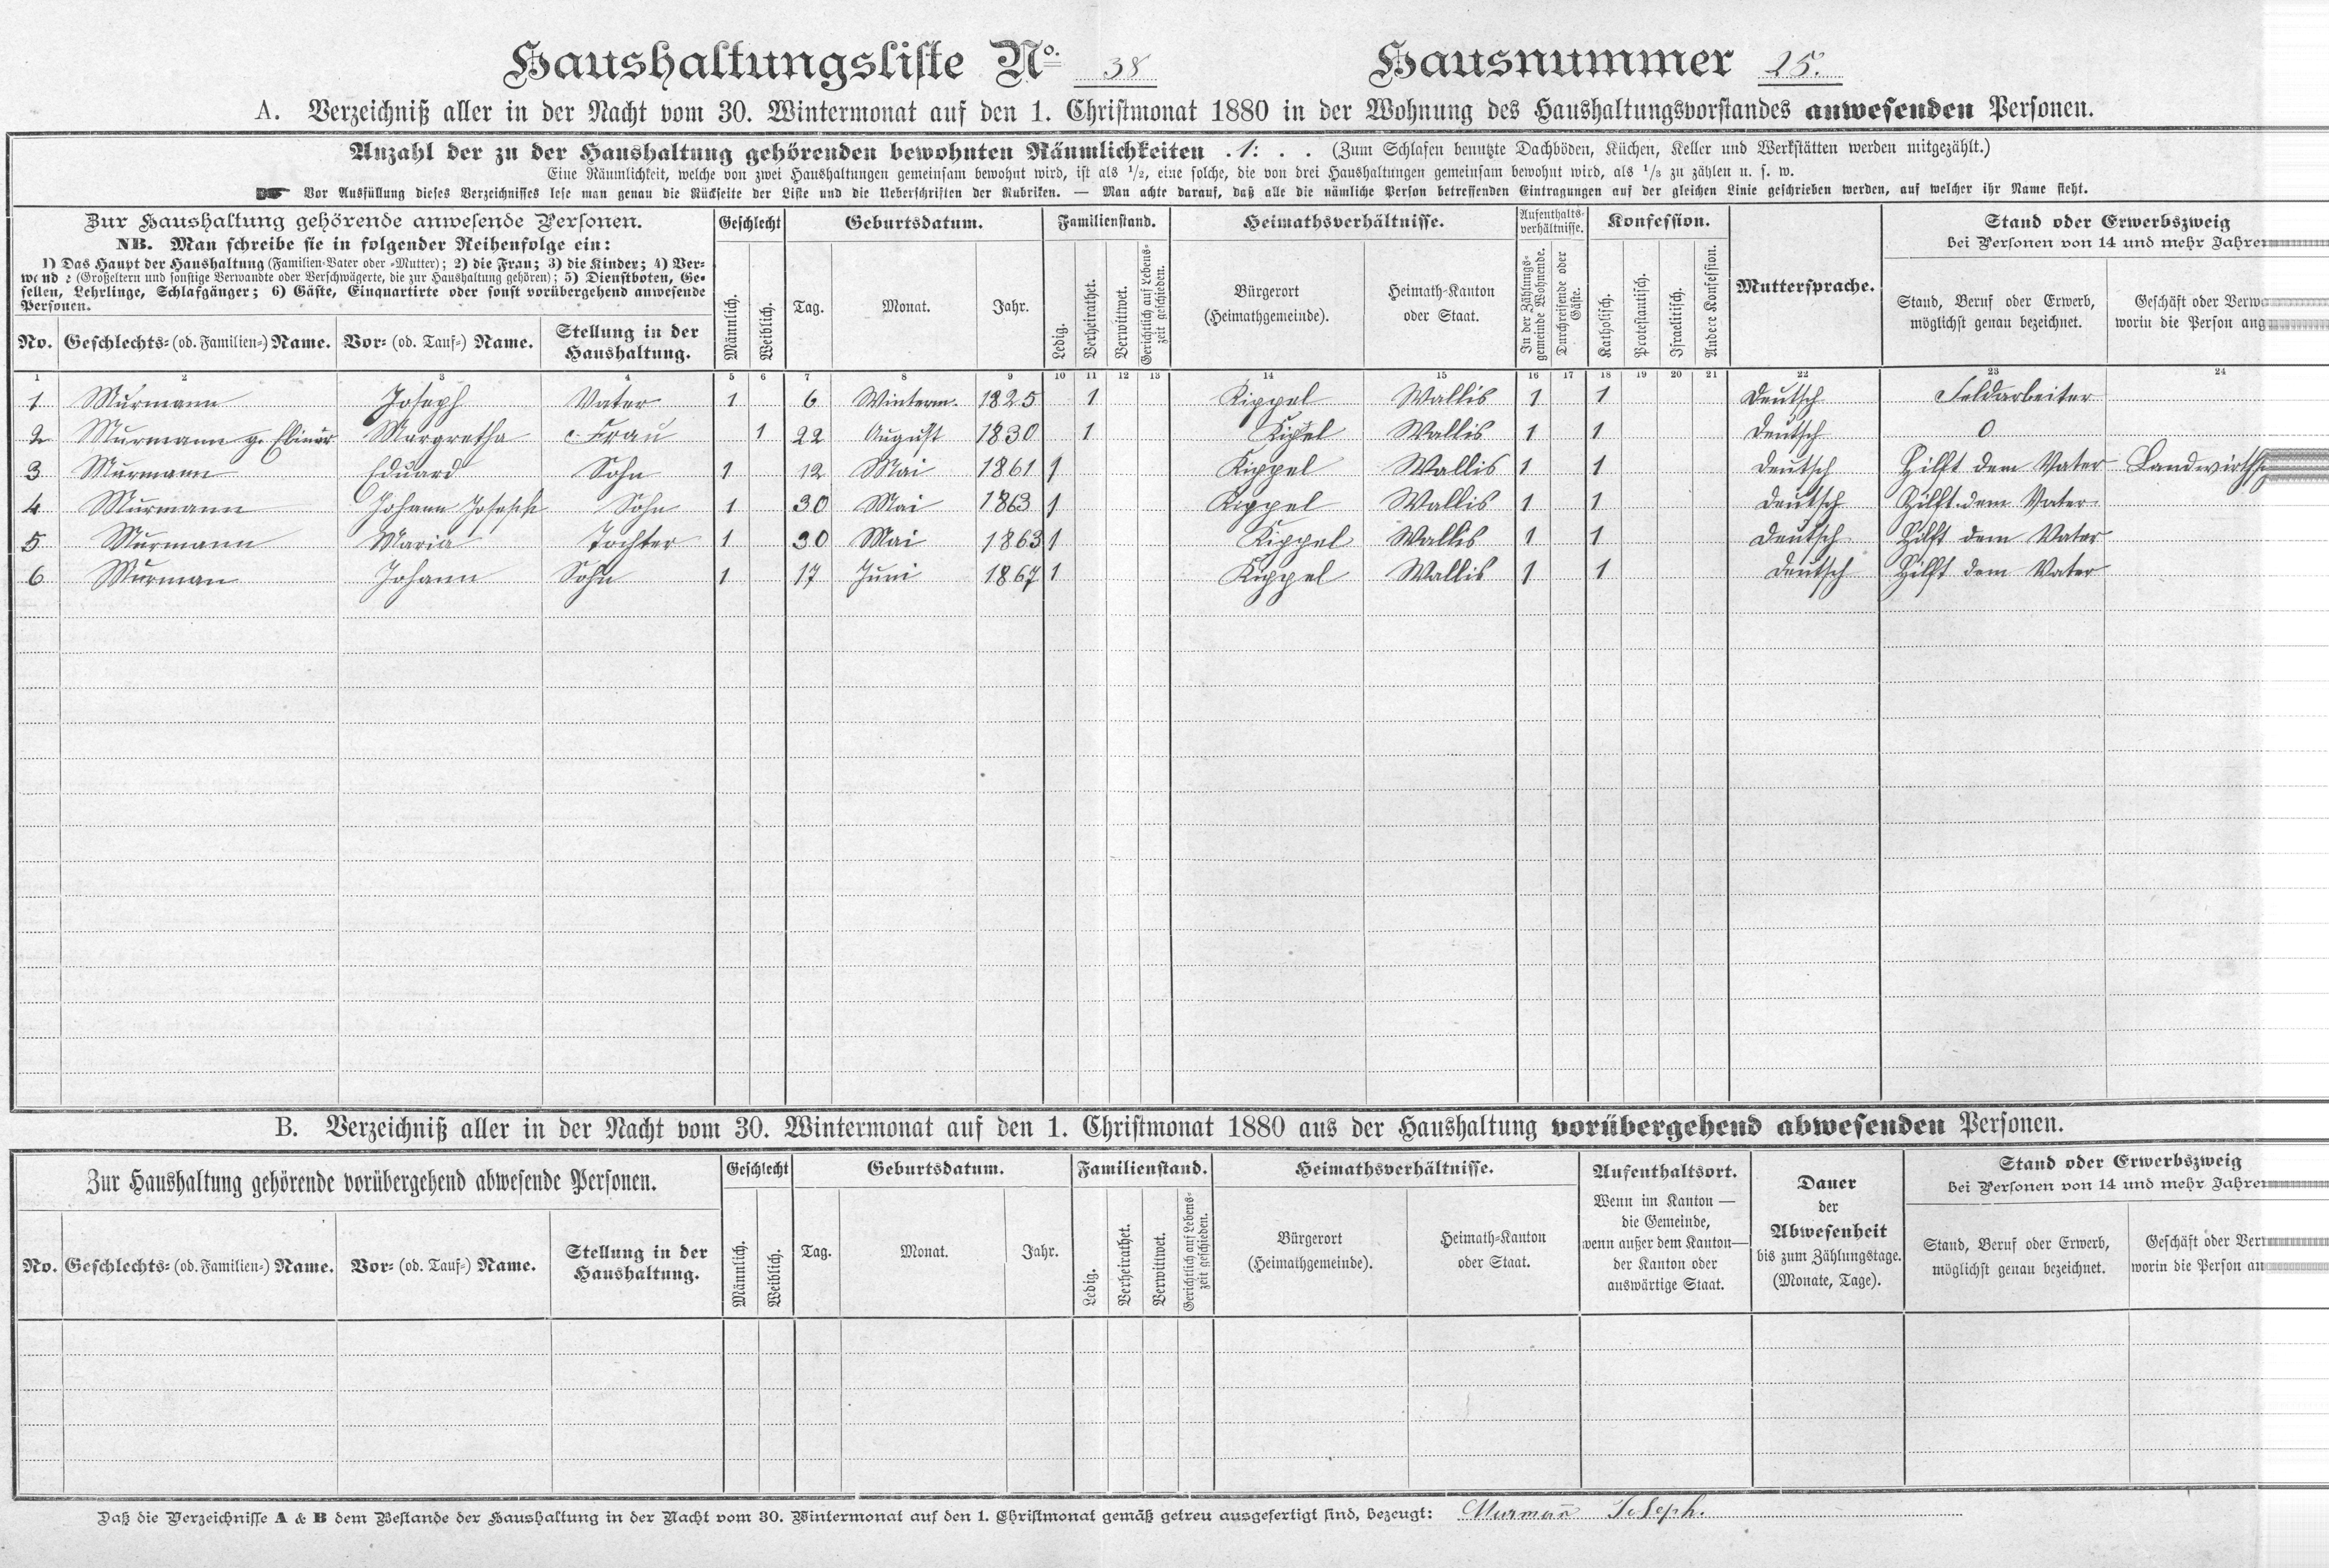 Haushaltungsliste No. 38 Hausnummer 25.
A. Verzeichniß aller in der Nacht vom 30. Wintermonat auf den 1. Christmonat 1880 in der Wohnung des Haushaltungsvorstandes anwesenden Personen.
Anzahl der zu der Haushaltung gehörenden bewohnten Räumlichkeiten . 1: . . (Zum Schlafen benutzte Dachböden, Küchen, Keller und Werkstätten werden mitgezählt.)
Eine Räumlichkeit, welche von zwei Haushaltungen gemeinsam bewohnt wird, ist als 1/2, eine solche, die von drei Haushaltungen gemeinsam bewohnt wird, als 1/3 zu zählen u. s. w.
Vor Ausfüllung dieses Verzeichnisses lese man genau die Rückseite der Liste und die Ueberschriften der Rubriken. — Man achte darauf, daß alle die nämliche Person betreffenden Eintragungen auf der gleichen Linie geschrieben werden, auf welcher ihr Name steht.
Zur Haushaltung gehörende anwesende Personen.
NB. Man schreibe sie in folgender Reihenfolge ein:
1) Das Haupt der Haushaltung (Familien-Vater oder -Mutter); 2) die Frau; 3) die Kinder; 4) Ver-
wand e (Großeltern und sonstige Verwandte oder Verschwägerte, die zur Haushaltung gehören); 5) Dienstboten, Ge-
sellen, Lehrlinge, Schlafgänger; 6) Gäste, Einquartirte oder sonst vorübergehend anwesende
Personen.
No. Geschlechts- (od. Familien-) Name. Vor- (od. Tauf-) Name. Stellung in der
Haushaltung.
Geschlecht
Männlich. Weiblich.
Geburtsdatum.
Tag. Monat. Jahr.
Familienstand.
Ledig. Verheirathet. Verwittwet. Gerichtlich auf Lebens-
zeit geschieden.
Heimathsverhältnisse.
Bürgerort
(Heimathgemeinde).
Heimath-Kanton
oder Staat.
Aufenthalts-
verhältnisse.
In der Zählungs-
gemeinde Wohnende.
Durchreisende oder
Gäste.
Konfession.
Katholisch. Protestantisch. Israelitisch. Andere Konfession.
Muttersprache.
Stand oder Erwerbszweig
bei Personen von 14 und mehr Jahren
Stand, Beruf oder Erwerb,
möglichst genau bezeichnet.
Geschäft oder Verwa
worin die Person ang
1 2 3 4 5 6 7 8 9 10 11 12 13 14 15 16 17 18 19 20 21 22 23 24
1 Murmann Joseph Vater 1 6 Winterm. 1825 1 Kippel Wallis 1 1 Deutsch Feldarbeiter
2 Murmann g. Margretha Frau 1 22 August 1830 1 Kippel Wallis 1 1 Deutsch 0
3 Murmann Eduard Sohn 1 12 Mai 1861 1 Kippel Wallis 1 1 Deutsch Hilft dem Vater Landwirthsch
4 Murmann Johann Joseph Sohn 1 30 Mai 1863 1 Kippel Wallis 1 1 Deutsch Hilft dem Vater
5 Murmann Maria Tochter 1 30 Mai 1863 1 Kippel Wallis 1 1 Deutsch Hilft dem Vater
6 Murman Johann Sohn 1 17 Juni 1867 1 Kippel Wallis 1 1 Deutsch Hilft dem Vater
B. Verzeichniß aller in der Nacht vom 30. Wintermonat auf den 1. Christmonat 1880 aus der Haushaltung vorübergehend abwesenden Personen.
Zur Haushaltung gehörende vorübergehend abwesende Personen.
No. Geschlechts- (od. Familien-) Name. Vor- (od. Tauf-) Name. Stellung in der
Haushaltung.
Geschlecht
Männlich. Weiblich.
Geburtsdatum.
Tag. Monat. Jahr.
Familienstand.
Ledig. Verheirathet. Verwittwet. Gerichtlich auf Lebens-
zeit geschieden.
Heimathsverhältnisse.
Bürgerort
(Heimathgemeinde).
Heimath-Kanton
oder Staat.
Aufenthaltsort.
Wenn im Kanton —
die Gemeinde,
wenn außer dem Kanton—
der Kanton oder
auswärtige Staat.
Dauer
der
Abwesenheit
bis zum Zählungstage.
(Monate, Tage).
Stand oder Erwerbszweig
bei Personen von 14 und mehr Jahren
Stand, Beruf oder Erwerb,
möglichst genau bezeichnet.
Geschäft oder Ver
worin die Person an
Daß die Verzeichnisse A & B dem Bestande der Haushaltung in der Nacht vom 30. Wintermonat auf den 1. Christmonat gemäß getreu ausgefertigt sind, bezeugt: Murmañ Joseph.